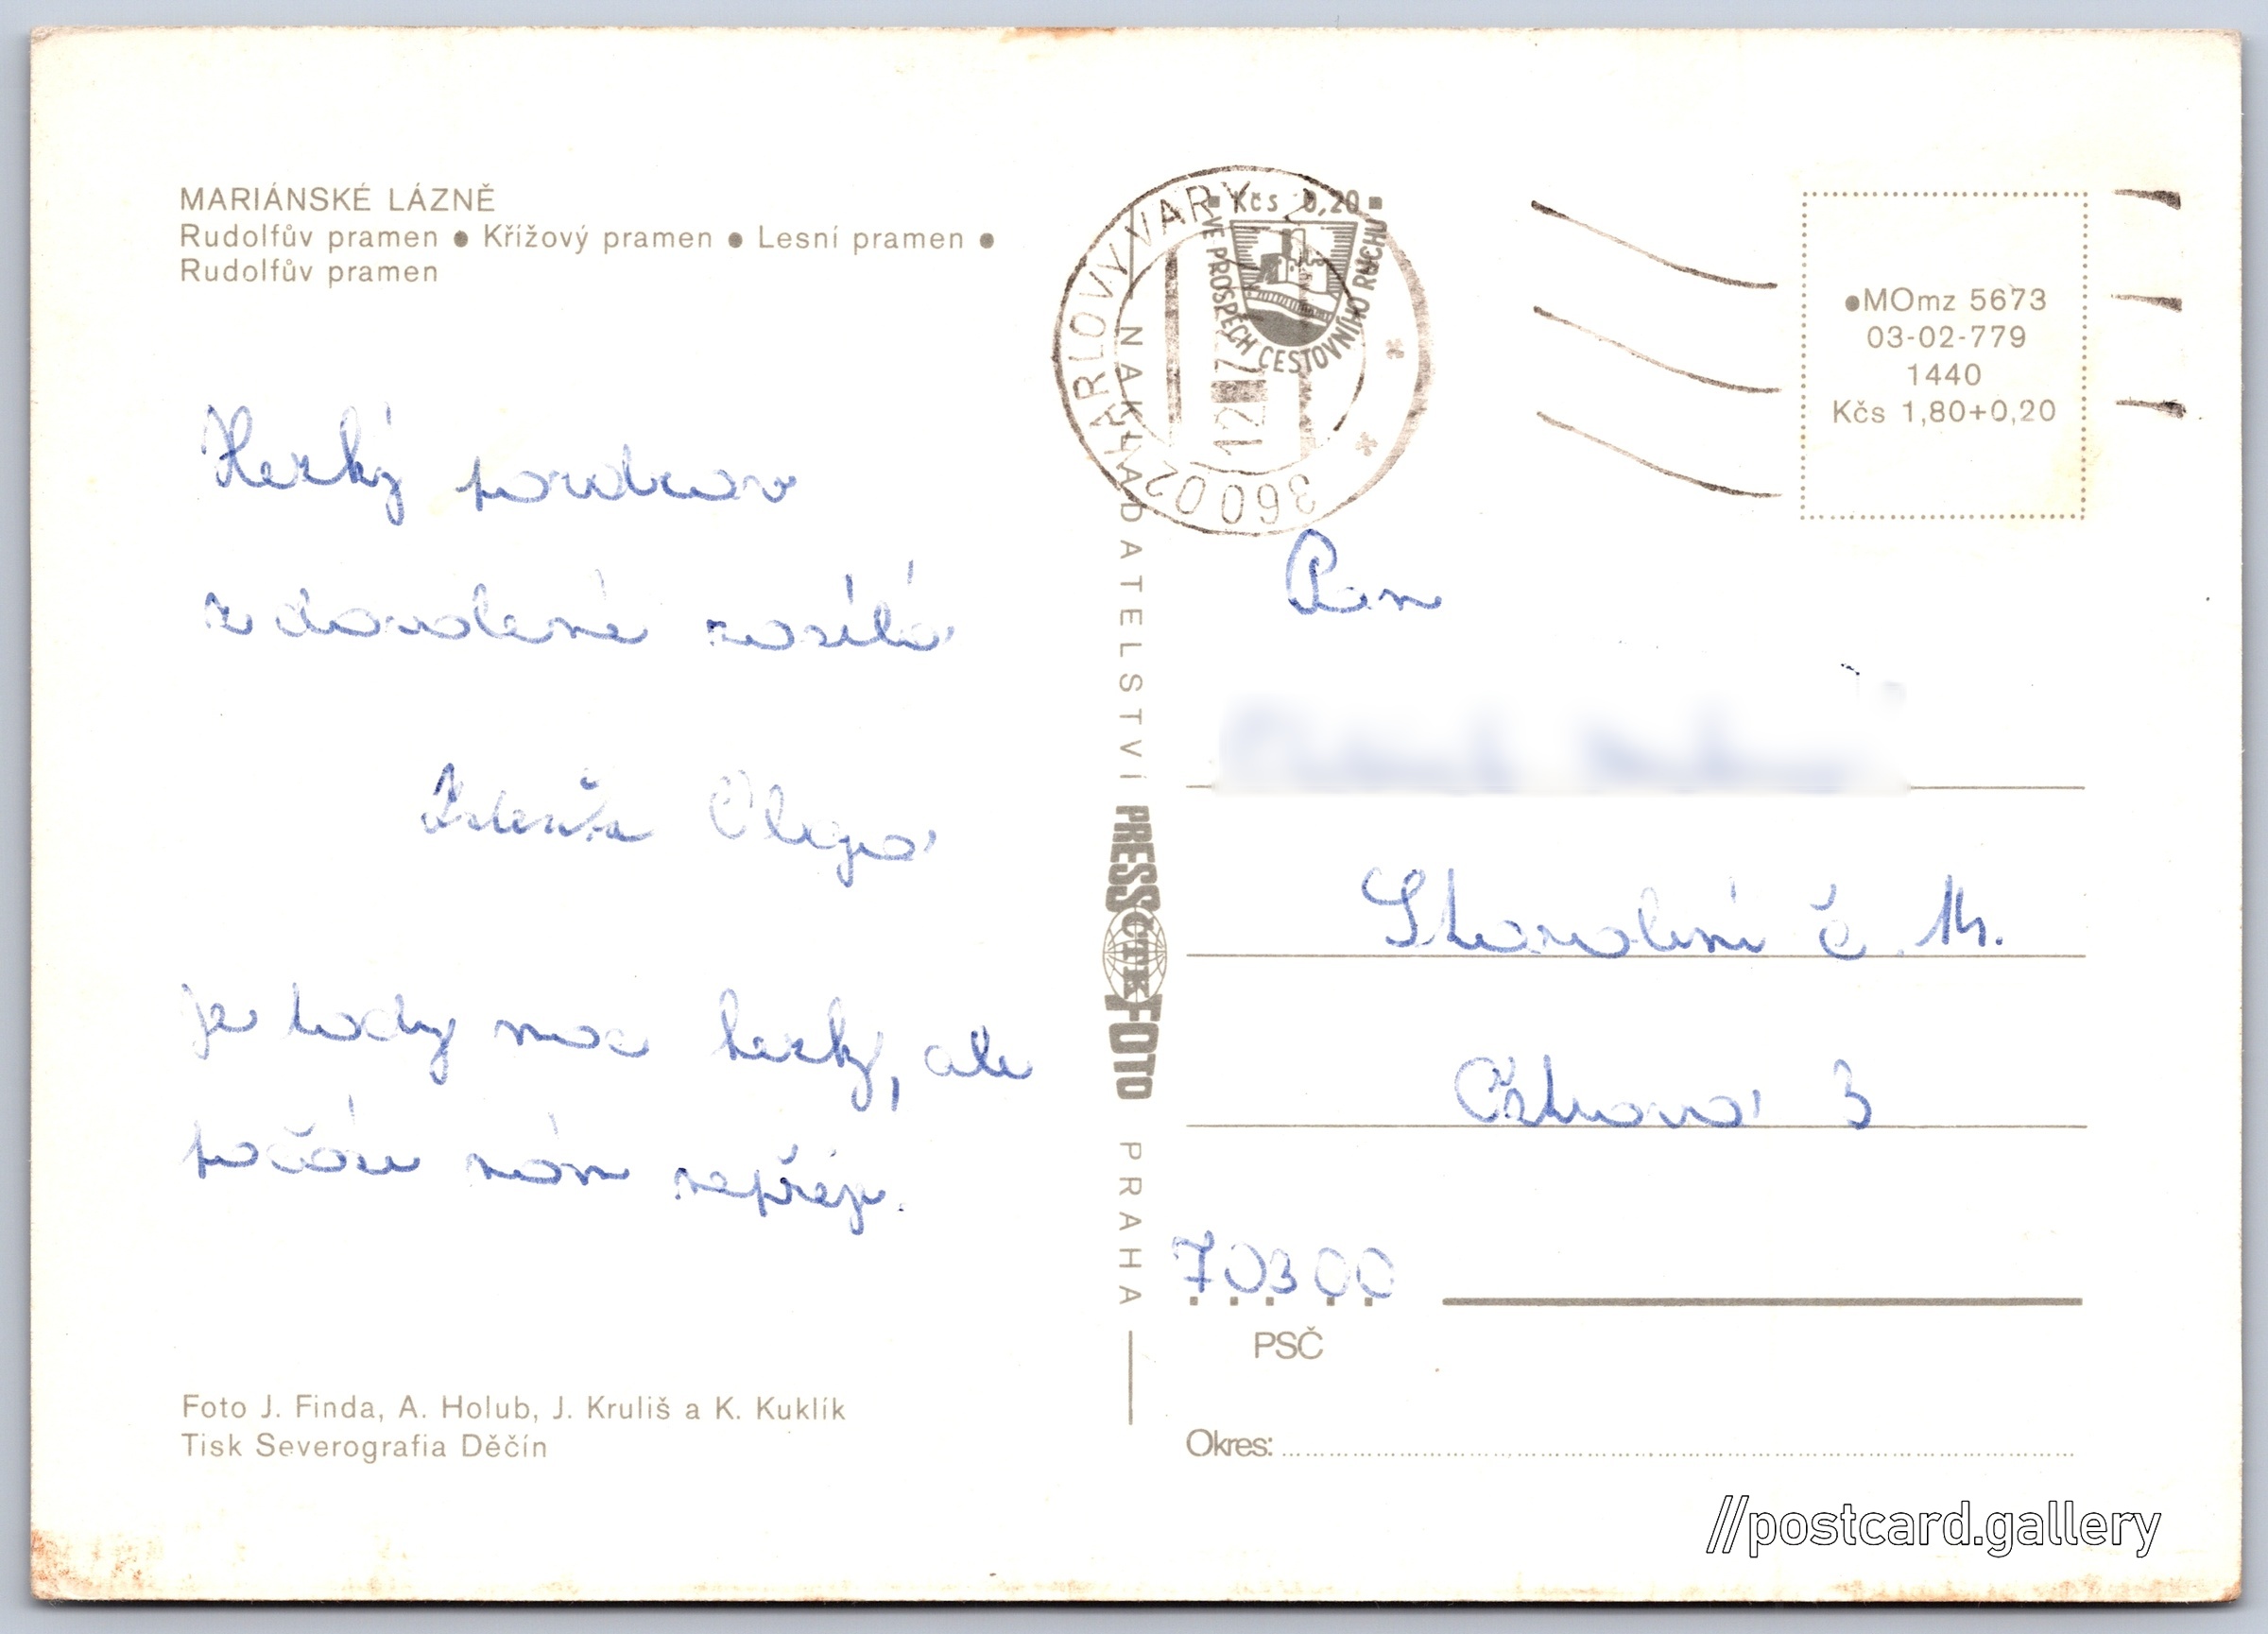 MARIÁNSKÉ LÁZNĚ
Rudolfův pramen ● Křížový pramen ● Lesní pramen ●
Rudolfův pramen
Hezký pozdrav
z dovolené zasílá
Zdeňka Olga
je tady moc hezky, ale
počási nám nepřeje.
Foto J. Finda, A. Holub, J. Kruliš a K. Kuklík
Tisk Severografia Děčín
NAKLADATELSTVÍ PRESSFOTO PRAHA
ČTK
KARLOVY VARY 2
360 02
12
Kčs 0,20
VE PROSPĚCH CESTOVNÍHO RUCHU
●MOmz 5673
03-02-779
1440
Kčs 1,80+0,20
Pan
č.
3
70300
PSČ
Okres:
//postcard.gallery